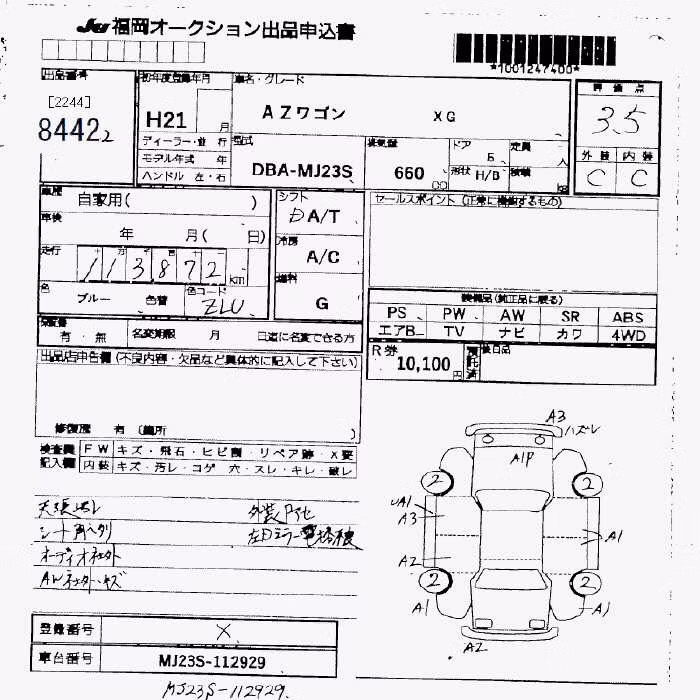 JU 福岡オークション出品申込書
*1001247400*
出品番号
[2244]
8442 2
初年度登録年月
H21 月
ディーラー・並 行
モデル年式 年
ハンドル 左・右
車名・グレード
AZワゴン XG
型式
DBA-MJ23S
排気量
660
CC
ドア
5
形状 H/B
定員
人
積載
kg
評価点
3.5
外装 内装
C C
車歴
自家用( )
車検
年 月( 日)
走行
113872 km
色
ブルー 色替
色コード
ZLU
シフト
D A/T
冷房
A/C
燃料
G
セールスポイント (正常に機能するもの)
装備品 (純正品に限る)
PS PW AW SR ABS
エアB TV ナビ カワ 4WD
保証書
有・無
名変期限 月 日迄に名変できる方
R券
10,100円
預託済
後日品
出品店申告欄 (不良内容・欠品など具体的に記入して下さい)
修復歴 有 (箇所 )
検査員
記入欄
FW キズ・飛石・ヒビ割・リペア跡・X要
内装 キズ・汚レ・コゲ 穴・スレ・キレ・破レ
シート
AW
A3
ハズレ
A1P
2
2
A1
A3
A1
A2
2
2
A1
A1
A2
登録番号
X
車台番号
MJ23S-112929
MJ23S-112929